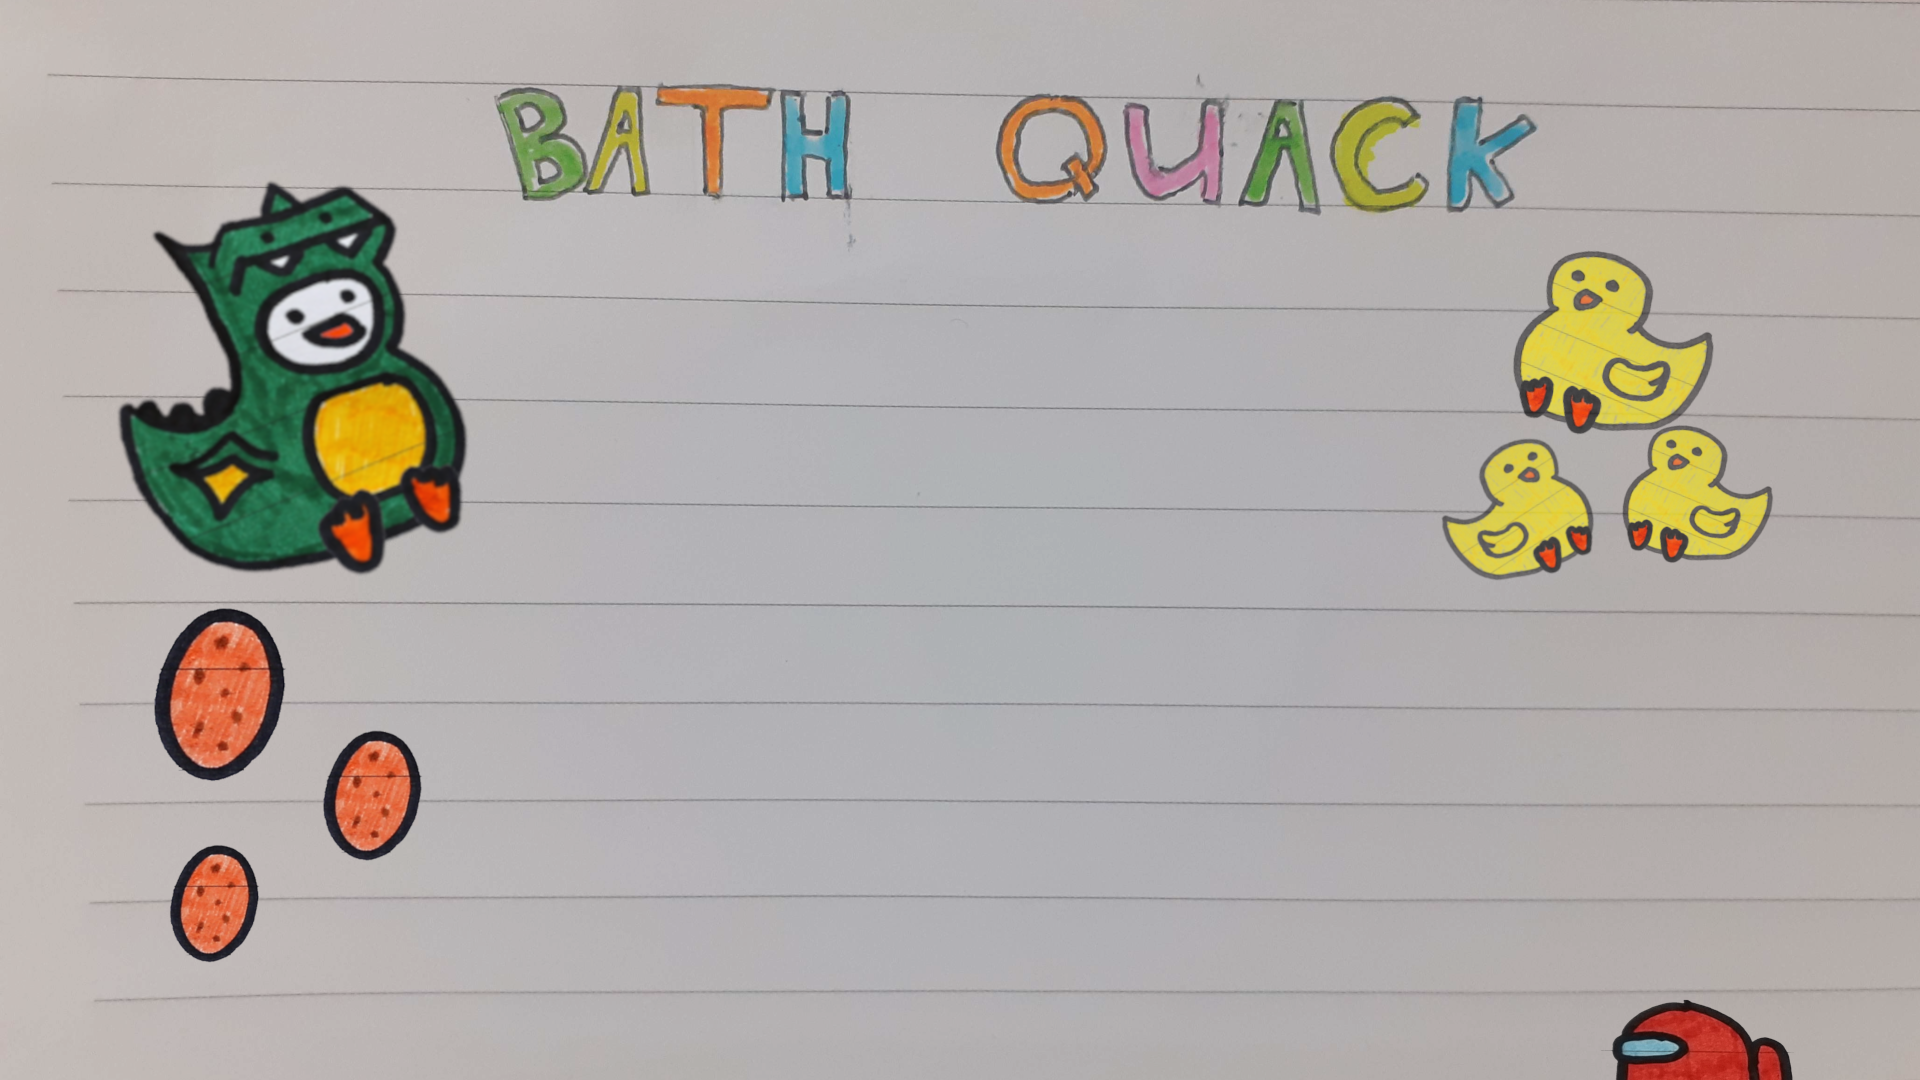 BATH QUACK